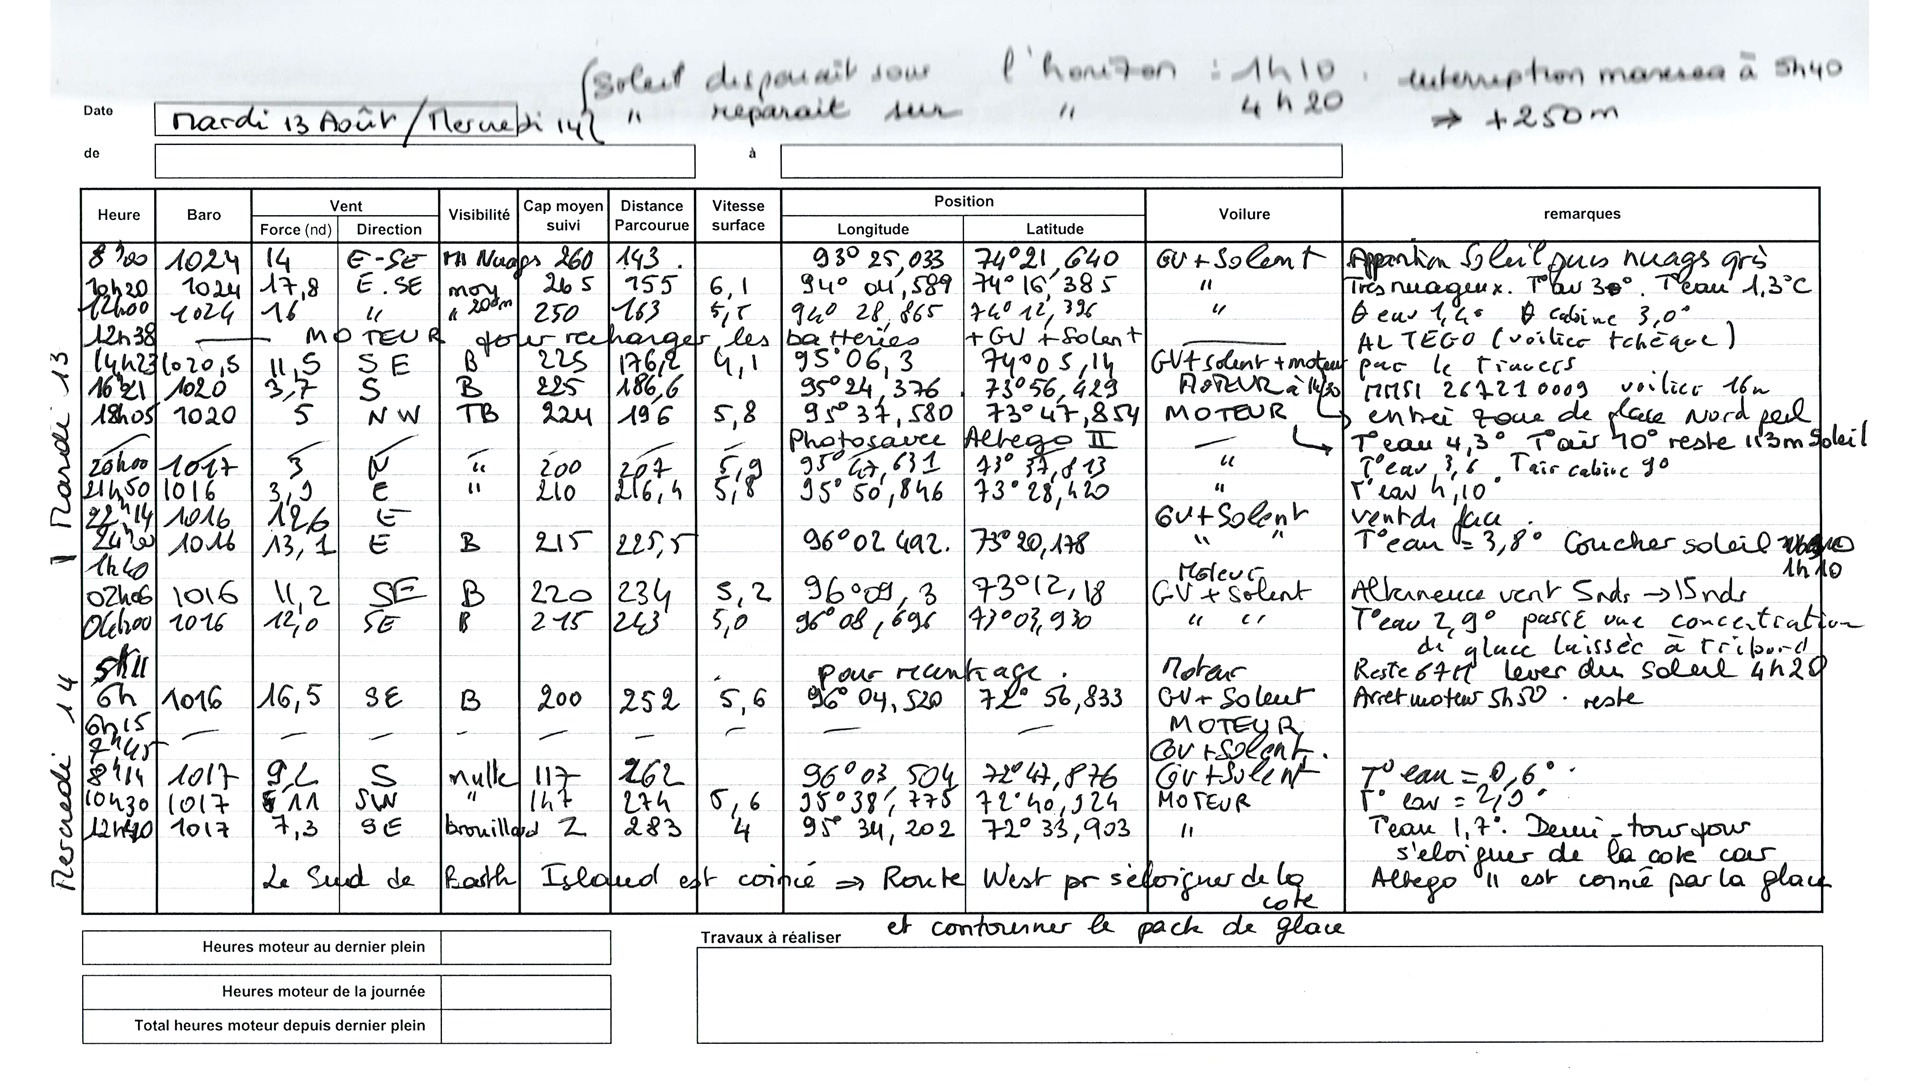 (Soleil disparait sous l'horizon : 1h10. interruption à 5h40
Date Mardi 13 Août/Mercredi 14 ( " reparait sur " 4h20 → +250m
de à
Heure Baro Vent Visibilité Cap moyen suivi Distance Parcourue Vitesse surface Position Voilure remarques
Force (nd) Direction Longitude Latitude
8h00 1024 14 E-SE Nuages 260 143. 93° 25,033 74°21,640 GV+Solent Apparition Soleil puis nuages gris
10h20 1024 17,8 E.SE moy 265 155 6,1 94° 04,589 74°16,385 " Tres nuageux. T°air 3°. T°eau 1,3°C
12h00 1024 16 " " 200m 250 163 5,5 94° 28,865 74°12,326 " θ eau 1,4° θ cabine 3,0°
12h38 — MOTEUR pour recharger les batteries + GV + Solent — ALTEGO (voilier tchèque)
14h23 1020,5 11,5 SE B 225 176,2 4,1 95°06,3 74°05,14 GV+solent+moteur par le travers
16h21 1020 3,7 S B 225 186,6 95°24,376 73°56,429 MOTEUR à MMSI 267210009 voilier 16m
18h05 1020 5 NW TB 224 196 5,8 95°37,580 73°47,854 MOTEUR entrée zone de glace Nord peel
Photos avec Altego II — T°eau 4,3° T°air 10° reste 113m Soleil
20h00 1017 3 N " 200 207 5,9 95°47,631 73°37,813 " T°eau 3,6 Tair cabine 9°
21h50 1016 3,9 E " 210 216,4 5,8 95°50,846 73°28,420 " T°eau 4,10°
22h14 1016 12,6 E GV+Solent vent de face.
24h00 1016 13,1 E B 215 225,5 96°02 492. 73°20,178 " " T°eau = 3,8° Coucher soleil
1h40 Moteur 1h10
02h06 1016 11,2 SE B 220 234 5,2 96°09,3 73°12,18 GV+Solent Alternance vent 5nds → 15nds
04h00 1016 12,0 SE B 215 243 5,0 96°08,696 73°03,930 " " T°eau 2,9° passé une concentration
de glace laissée à tribord
5h11 pour recentrage. Moteur Reste 67M lever du soleil 4h20
6h 1016 16,5 SE B 200 252 5,6 96° 04,520 72° 56,833 GV+Solent Arret moteur 5h50. reste
6h15 — — — — — — — — — MOTEUR
7h45 GV+Solent.
8h14 1017 9,2 S nulle 117 262 96°03,504 72°47,876 GV+Solent T° eau = 0,6°.
10h30 1017 11 SW " 147 274 5,6 95°38,775 72°40,924 MOTEUR T° eau = 2,9°
12h40 1017 7,3 SE brouillard 283 4 95° 34,202 72°33,903 " Teau 1,7°. Demi-tour pour
s'eloigner de la cote car
Le Sud de Barth Island est coincé ⇒ Route West pr s'éloigner de la cote Altego II est coincé par la glace
et contourner le pack de glace
Mardi 13
Mercredi 14
Heures moteur au dernier plein
Travaux à réaliser
Heures moteur de la journée
Total heures moteur depuis dernier plein